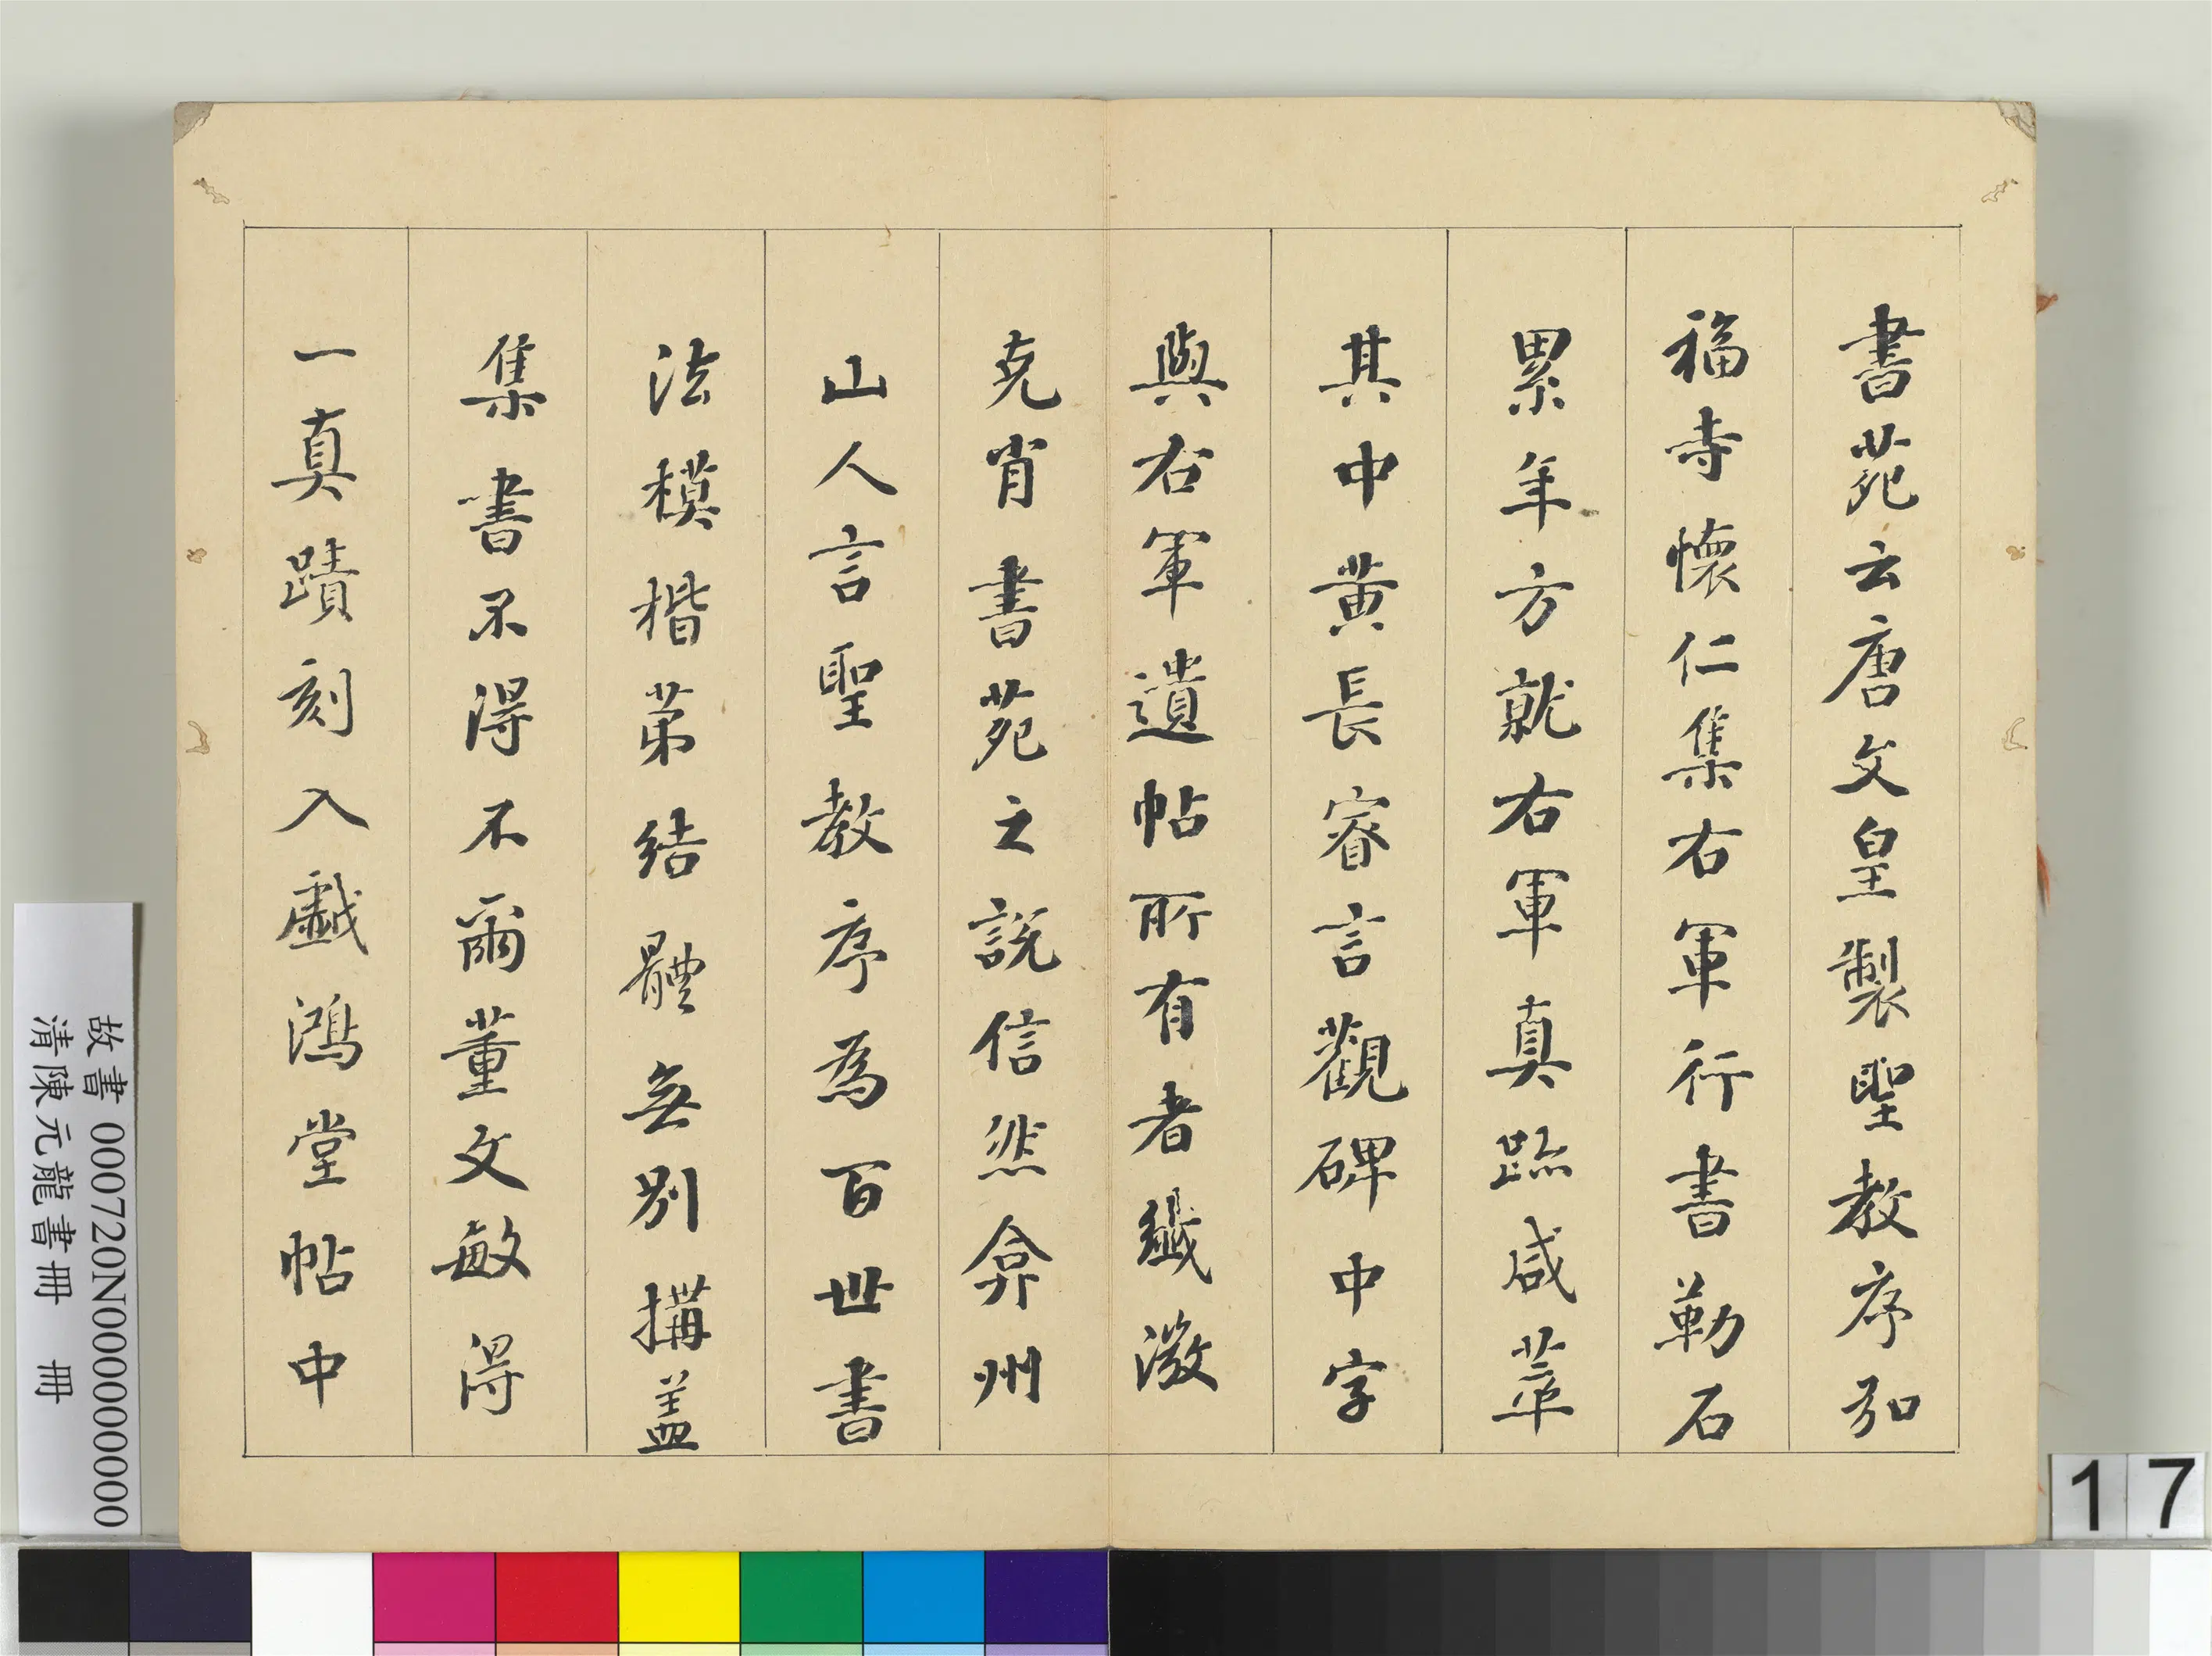 書苑云唐文皇製聖教序弘
福寺懷仁集右軍行書勒石
累年方就右軍真跡咸萃
其中黃長睿言觀碑中字
與右軍遺帖所有者纖微
克肖書苑之說信然弇州
山人言聖教序為百世書
法模楷苐結體無別搆盖
集書不得不爾董文敏得
一真蹟刻入戲鴻堂帖中
故書 000720N000000000
清陳元龍書冊 冊
17